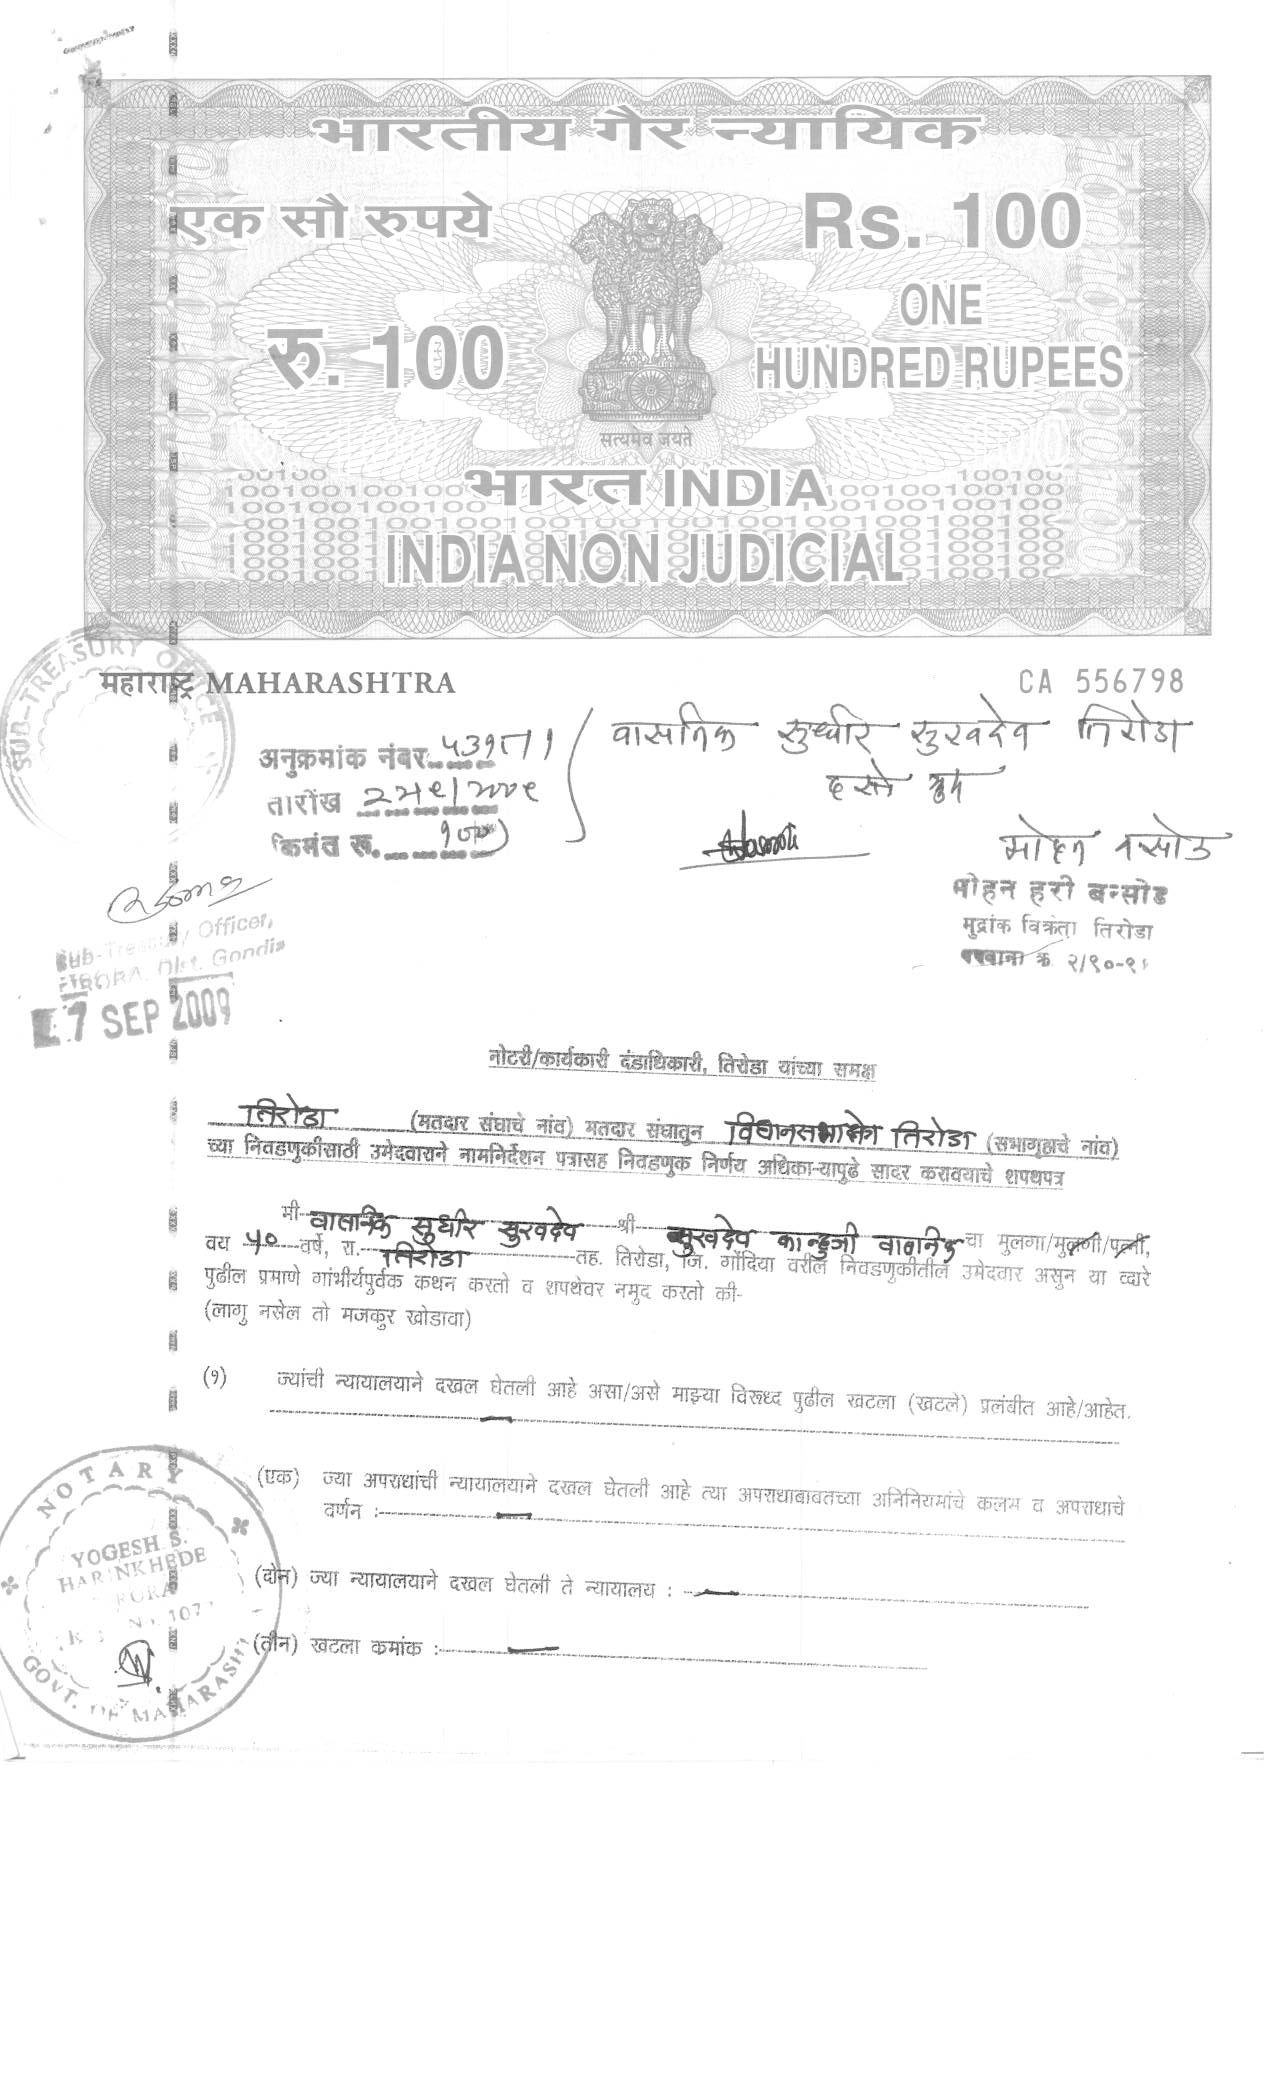 भारतीय गैर न्यायिक
एक सौ रुपये
Rs. 100
रु. 100
ONE
HUNDRED RUPEES
सत्यमेव जयते
भारत INDIA
INDIA NON JUDICIAL
महाराष्ट्र MAHARASHTRA
CA 556798
SUB-TREASURY OFFICE
वासनिक सुधीर सुखदेव तिरोडा
अनुक्रमांक नंबर
दस्ते
तारीख
किंमत रू. १००
मोहन बन्सोड
मोहन हरी बन्सोड
मुद्रांक विक्रेता तिरोडा
परवाना क्र २/९०-९१
Sub-Treasury Officer,
TIRORA, Dist. Gondia
7 SEP 2009
नोटरी/कार्यकारी दंडाधिकारी, तिरोडा यांच्या समक्ष
तिरोडा (मतदार संघाचे नांव) मतदार संघातुन विधानसभाक्षेत्र तिरोडा (सभागृहाचे नांव)
च्या निवडणुकीसाठी उमेदवाराने नामनिर्देशन पत्रासह निवडणुक निर्णय अधिका-यापुढे सादर करावयाचे शपथपत्र
मी वासनिक सुधीर सुखदेव श्री सुखदेव कान्हुजी वासनिक चा मुलगा/मुलगी/पत्नी,
वय ५० वर्षे, रा. तिरोडा तह. तिरोडा, जि. गोंदिया वरील निवडणुकीतील उमेदवार असुन या व्दारे
पुढील प्रमाणे गांभीर्यपुर्वक कथन करतो व शपथेवर नमुद करतो की-
(लागु नसेल तो मजकुर खोडावा)
(१) ज्यांची न्यायालयाने दखल घेतली आहे असा/असे माझ्या विरूध्द पुढील खटला (खटले) प्रलंबीत आहे/आहेत.
(एक) ज्या अपराधांची न्यायालयाने दखल घेतली आहे त्या अपराधाबाबतच्या अनिनियमांचे कलम व अपराधाचे
वर्णन :
(दोन) ज्या न्यायालयाने दखल घेतली ते न्यायालय :
(तीन) खटला कमांक :
NOTARY
YOGESH S.
HARINKHEDE
GOVT. OF MAHARASHTRA